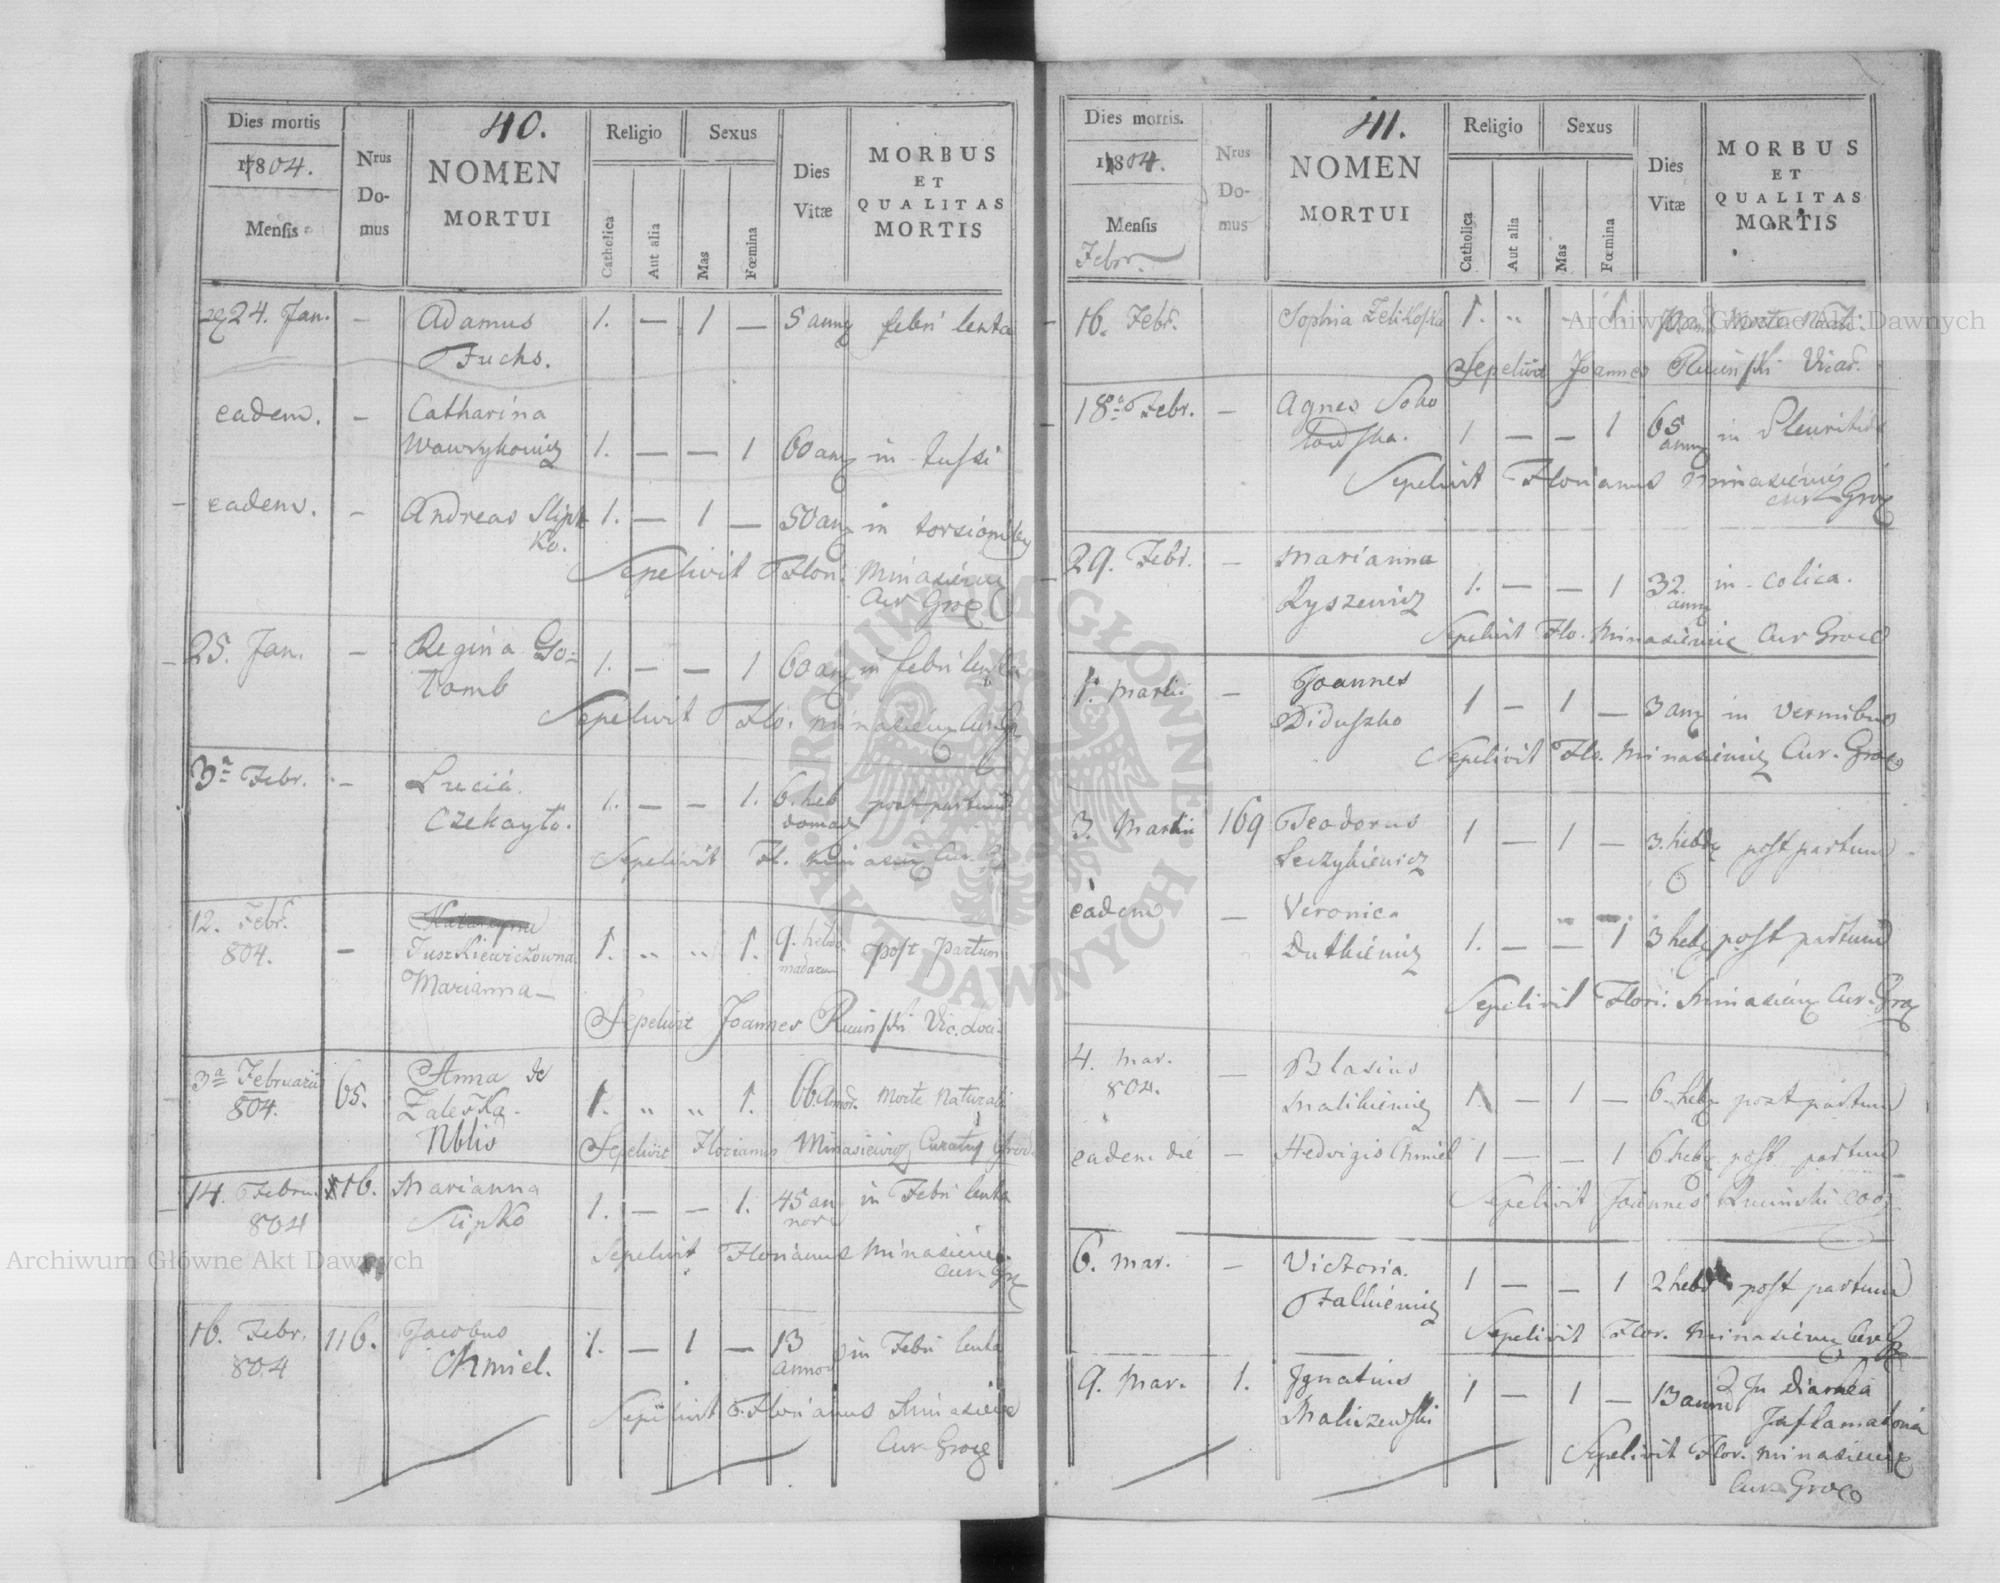 40.
Dies mortis
1804.
Mensis
Nrus Do-mus
NOMEN
MORTUI
Religio
Catholica
Aut alia
Sexus
Mas
Fœmina
Dies
Vitæ
MORBUS
ET
QUALITAS
MORTIS
24. Jan. — Adamus 1. — 1 — 5 ann febri lenta
Fuchs.
eadem. — Catharina
Wawrykowicz 1. — — 1 60 ann in tussi
eadem. — Andreas Slip 1. — 1 — 50 ann in
ko.
Sepelivit Flori. Minasiewicz
Cur Groc
25. Jan. — Regina Go=
lomb 1. — — 1 60 ann in febri lenta
Sepelivit Flo. Minasiewicz Cur Gr
3a Febr. — Lucia
Czekayło. 1. — — 1. 6. heb post partum
domad
Sepelivit Fl. Minasiewicz Cur. Gr
12. Febr. — 
804. Juszkiewiczowna 1. „ „ 1. 9. hebdo post partum
Marianna — madarum
Sepelivit Joannes Rminski Vic. Loci
3a Februarii 65. Anna de
804. Zaleska 1. „ „ 1. 66. Annor. Morte Naturali
Nblis
Sepelivit Florianus Minasiewicz Curatus Grod
14. Febru. 116. Marianna 1. — — 1. 45 an in Febri lenta
804 Slipko nor
Sepelivit Florianus Minasiewicz
Cur Gr
16. Febr. 116. Jacobus 1. — 1 — 13 in Febri lenta
804 Chmiel. annor
Sepelivit Florianus Minasiewicz
Cur Groc
41.
Dies mortis.
1804.
Mensis
Febr.
Nrus Do-mus
NOMEN
MORTUI
Religio
Catholica
Aut alia
Sexus
Mas
Fœmina
Dies
Vitæ
MORBUS
ET
QUALITAS
MORTIS
16. Febr. Sophia 1. „ — 1. Morte Natu:
Sepelivit Joannes Rminski Vicar.
18a Febr. — Agnes Soko
łowska. 1 — — 1 65 in Pleuritide
ann
Sepelivit Florianus Minasiewicz
cur Groc
29. Febr. — Marianna
Ryszewicz 1. — — 1 32. in colica.
ann
Sepelivit Flo. Minasiewic Cur Groc
1. Martii — Joannes
Diduszko 1 — 1 — 3 ann in vermibus
Sepelivit Flo. Minasiewicz Cur. Groc
3. Martii 169 Teodorus
Leczykiewicz 1 — 1 — 3. hebd post partum
6
eadem — Veronica
Dutkiewicz 1. — — 1 3 heb post partum
Sepelivit Flori: Minasiewicz Cur. Groc
4. Mar. — Blasius
804. Malikiewicz 1. — 1 — 6 heb post partum
eadem die — Hedvigis Chmiel 1 — — 1 6 heb post partum
Sepelivit Joannes Rminski coo
6. Mar. — Victoria
Falkiewicz 1 — — 1 2 hebd post partum
Sepelivit Flor. Minasiewicz Cur Gr
9. Mar. 1. Ignatius
Maliszewski 1 — 1 — 13 ann In diarhea
Inflamatoria
Sepelivit Flor. Minasiewicz
Cur Groc
ARCHIWUM GŁÓWNE AKT DAWNYCH
Archiwum Główne Akt Dawnych
Archiwum Główne Akt Dawnych